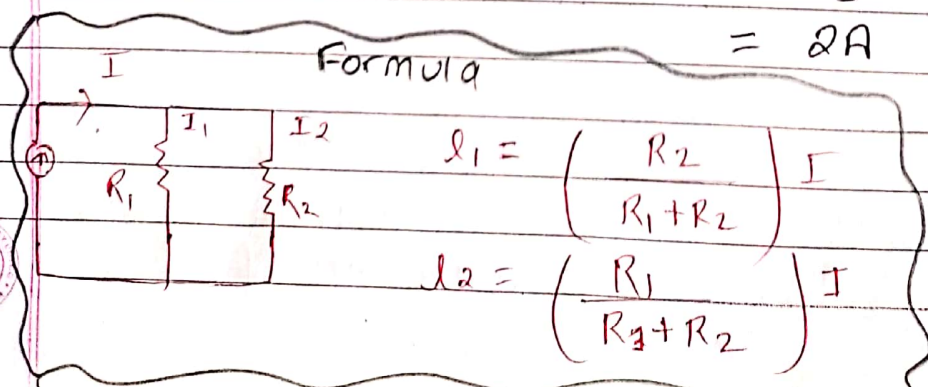 = 2A
Formula
I
I₁ I₂
R₁ R₂
l₁ = ( R₂ / R₁ + R₂ ) I
l₂ = ( R₁ / R₁ + R₂ ) I